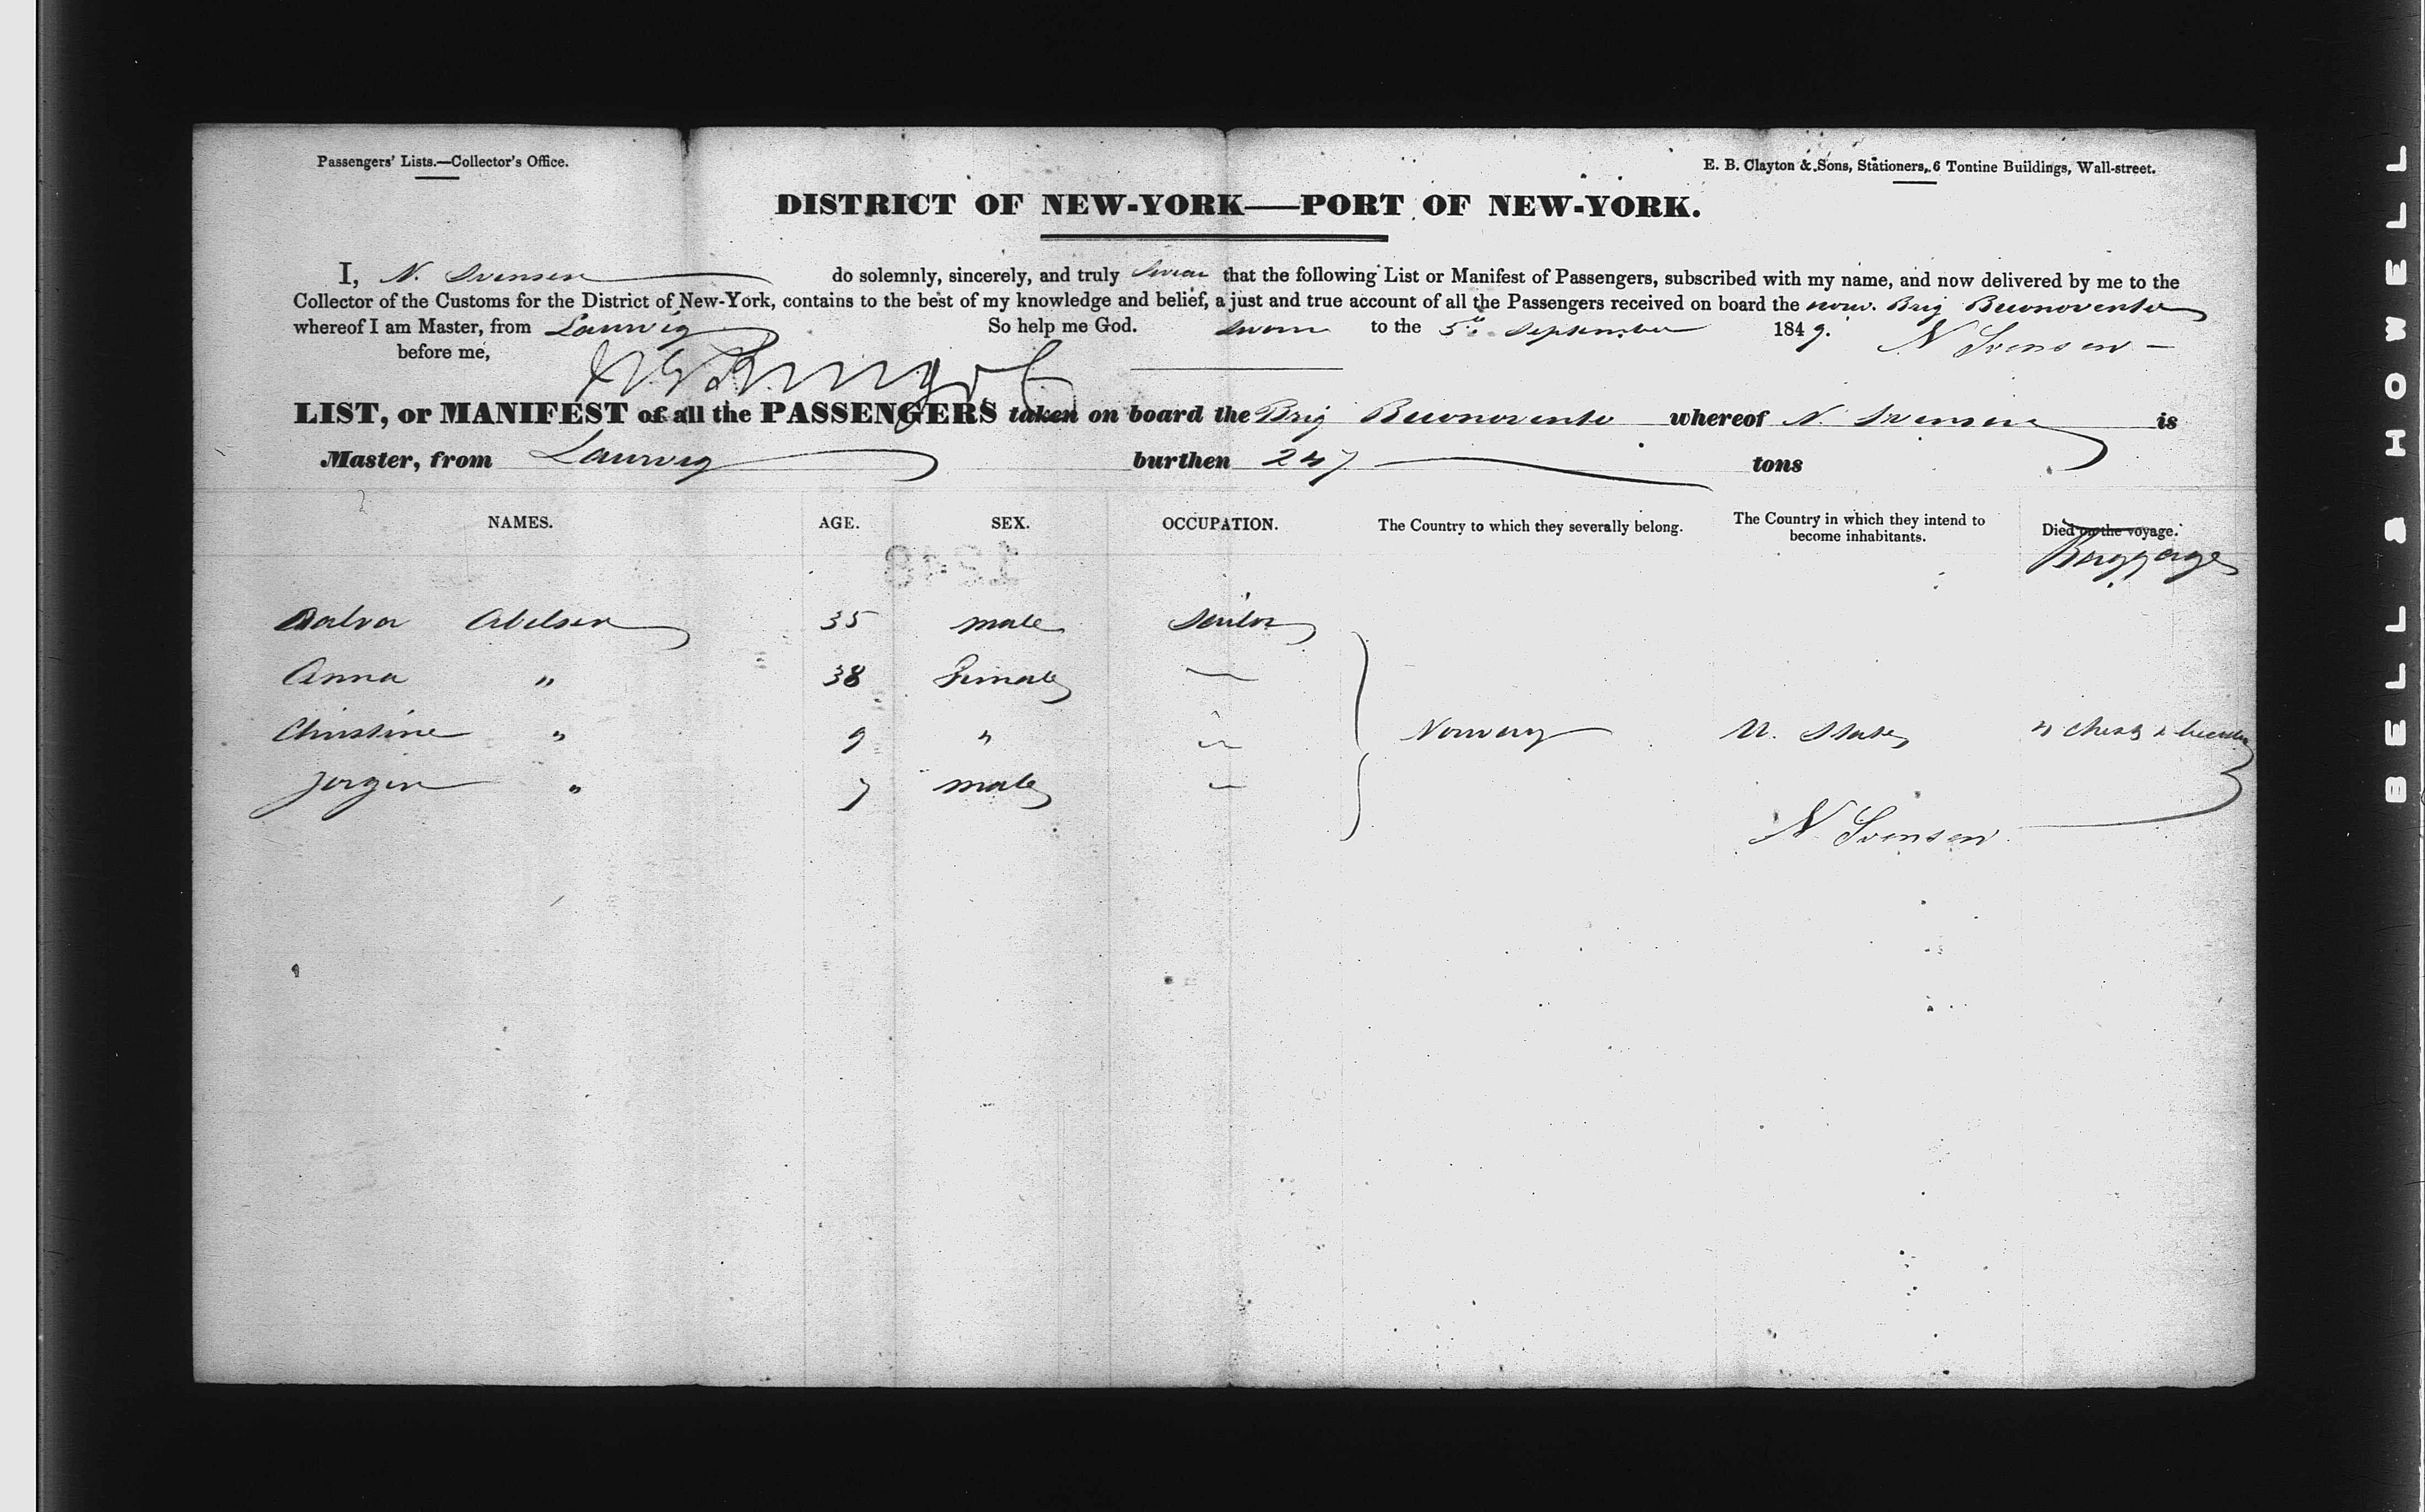 Passengers' Lists.—Collector's Office.
E. B. Clayton & Sons, Stationers, 6 Tontine Buildings, Wall-street.
DISTRICT OF NEW-YORK—PORT OF NEW-YORK.
I, N. Svensen do solemnly, sincerely, and truly swear that the following List or Manifest of Passengers, subscribed with my name, and now delivered by me to the
Collector of the Customs for the District of New-York, contains to the best of my knowledge and belief, a just and true account of all the Passengers received on board the norw. Brig Buonovento
whereof I am Master, from Laurvig So help me God. sworn to the 5th September 1849. N Svensen
before me,
LIST, or MANIFEST of all the PASSENGERS taken on board the Brig Buonovento whereof N. Svensen is
Master, from Laurvig burthen 247 tons
NAMES. AGE. SEX. OCCUPATION. The Country to which they severally belong. The Country in which they intend to become inhabitants. Died on the voyage.
Baggage
1249
Abelsen 35 male Sailor
Anna " 38 Female —
Christine " 9 " — Norway U. States 4 chests &
Jorgen " 7 male —
N Svensen
BELL & HOWELL